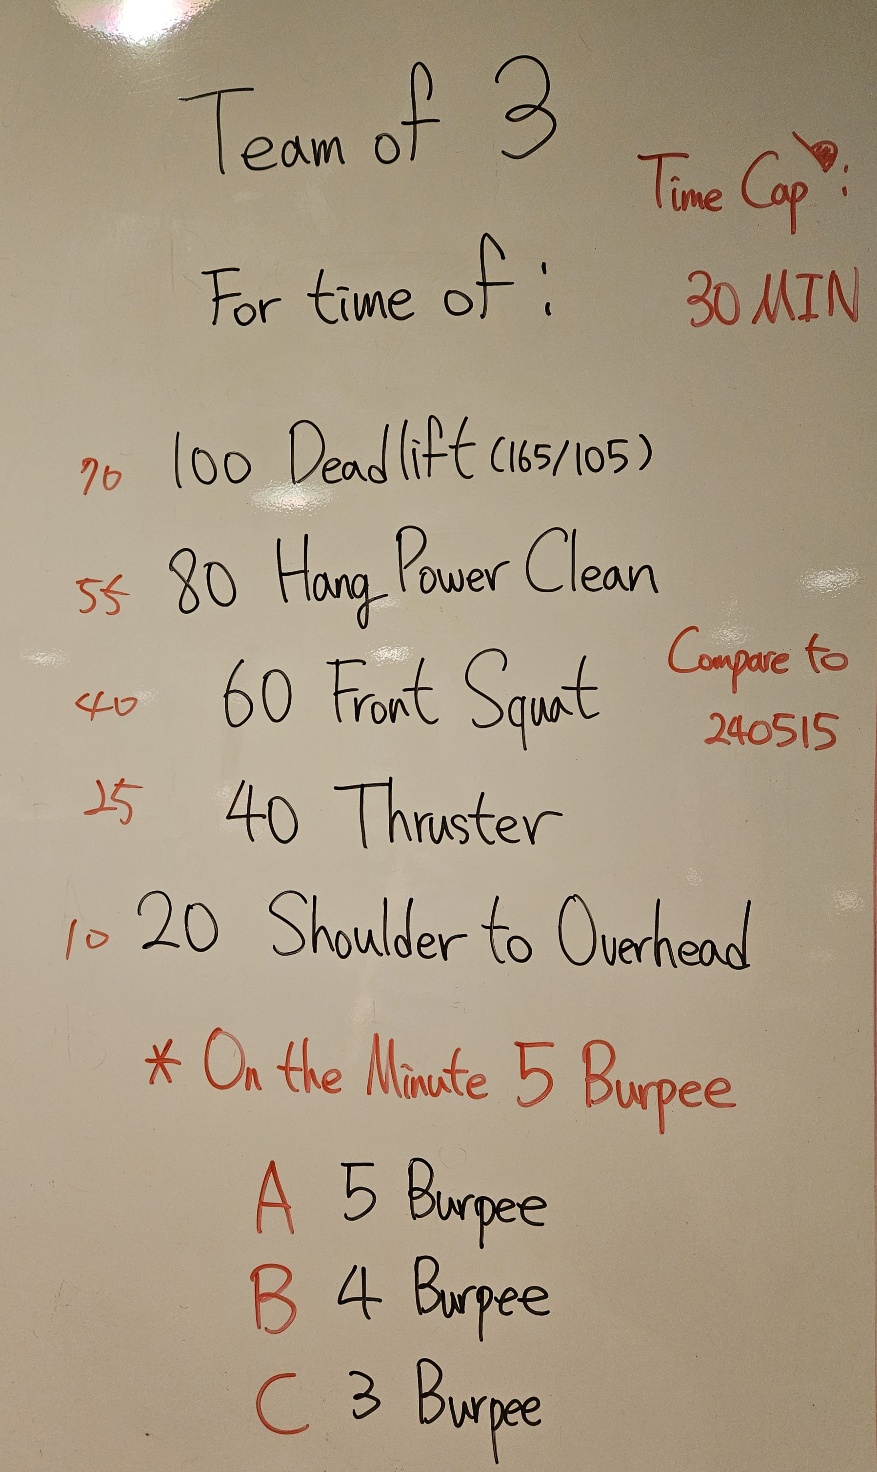 Team of 3
Time Cap:
For time of:
30 MIN
70 100 Deadlift (165/105)
55 80 Hang Power Clean
40 60 Front Squat
Compare to
240515
25 40 Thruster
10 20 Shoulder to Overhead
* On the Minute 5 Burpee
A 5 Burpee
B 4 Burpee
C 3 Burpee